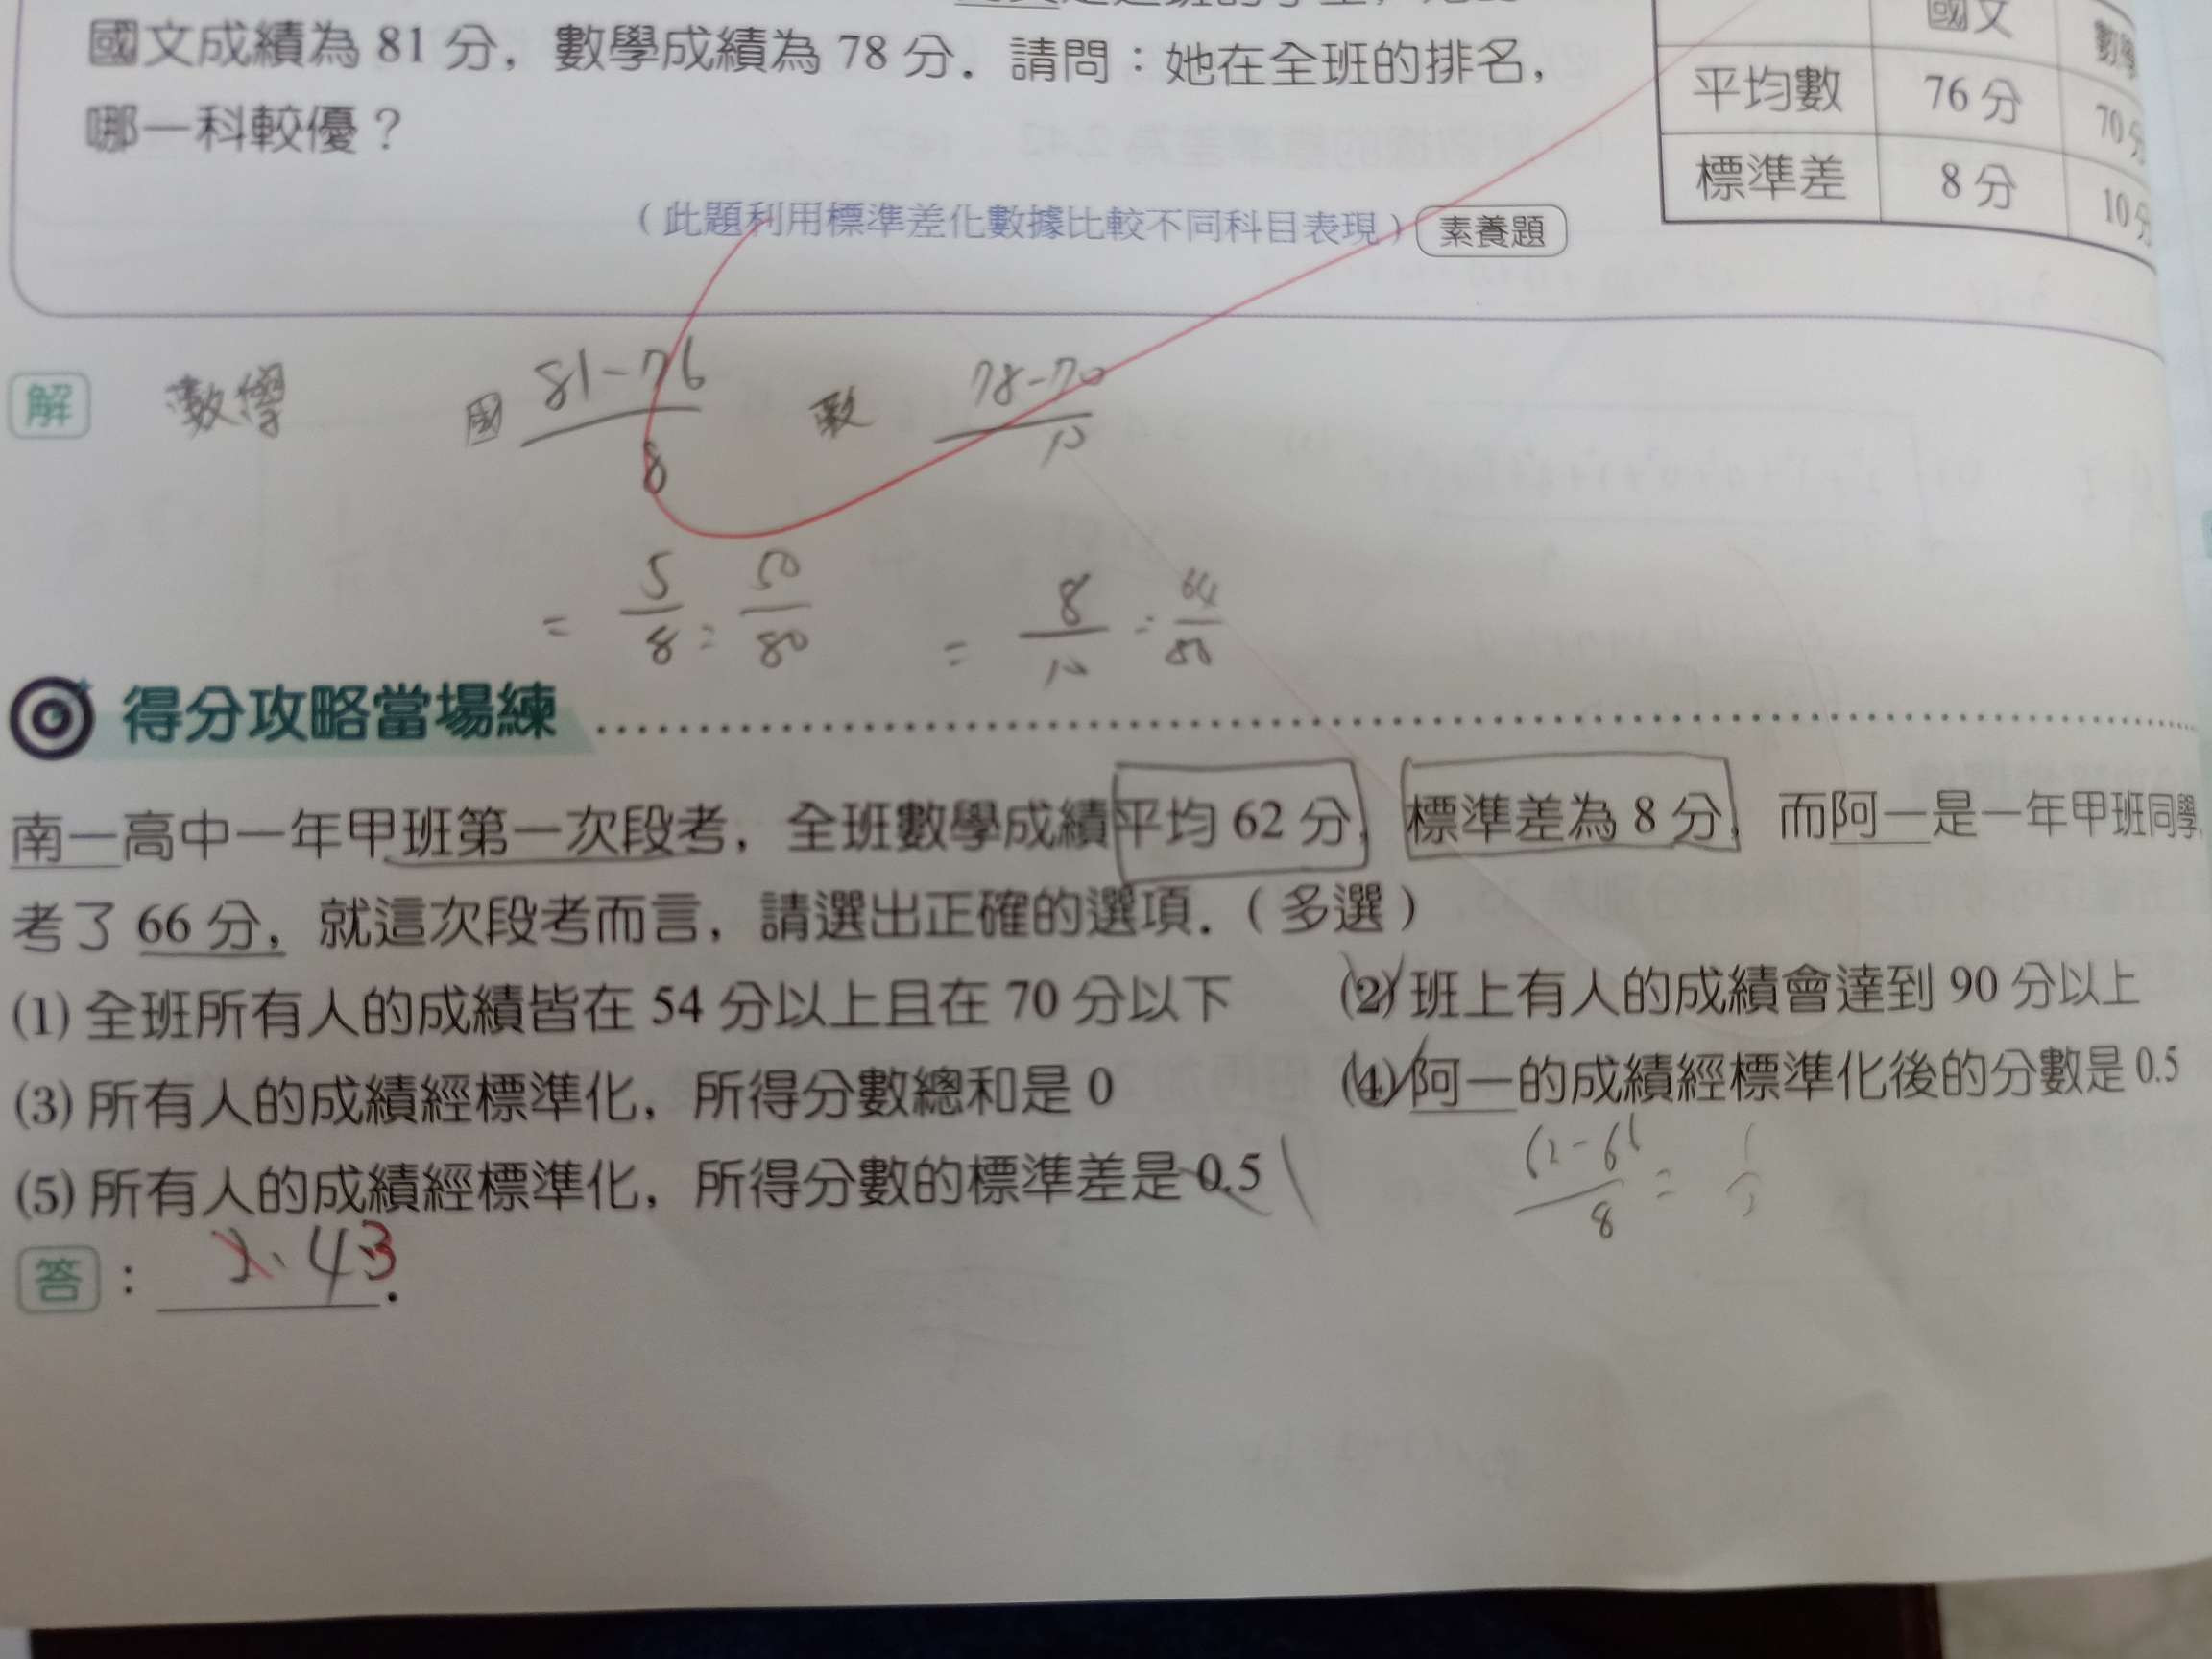 國文成績為 81 分，數學成績為 78 分．請問：她在全班的排名，
哪一科較優？
（此題利用標準差化數據比較不同科目表現）素養題
國文 數學
平均數 76 分 70 分
標準差 8 分 10 分
解 數學 國 81-76/8 數 78-70/10
= 5/8 = 50/80 = 8/10 = 64/80
得分攻略當場練
南一高中一年甲班第一次段考，全班數學成績平均 62 分，標準差為 8 分，而阿一是一年甲班同學
考了 66 分，就這次段考而言，請選出正確的選項．（多選）
(1) 全班所有人的成績皆在 54 分以上且在 70 分以下
(2) 班上有人的成績會達到 90 分以上
(3) 所有人的成績經標準化，所得分數總和是 0
(4) 阿一的成績經標準化後的分數是 0.5
(5) 所有人的成績經標準化，所得分數的標準差是 0.5
62-66/8 =
答：2、43．